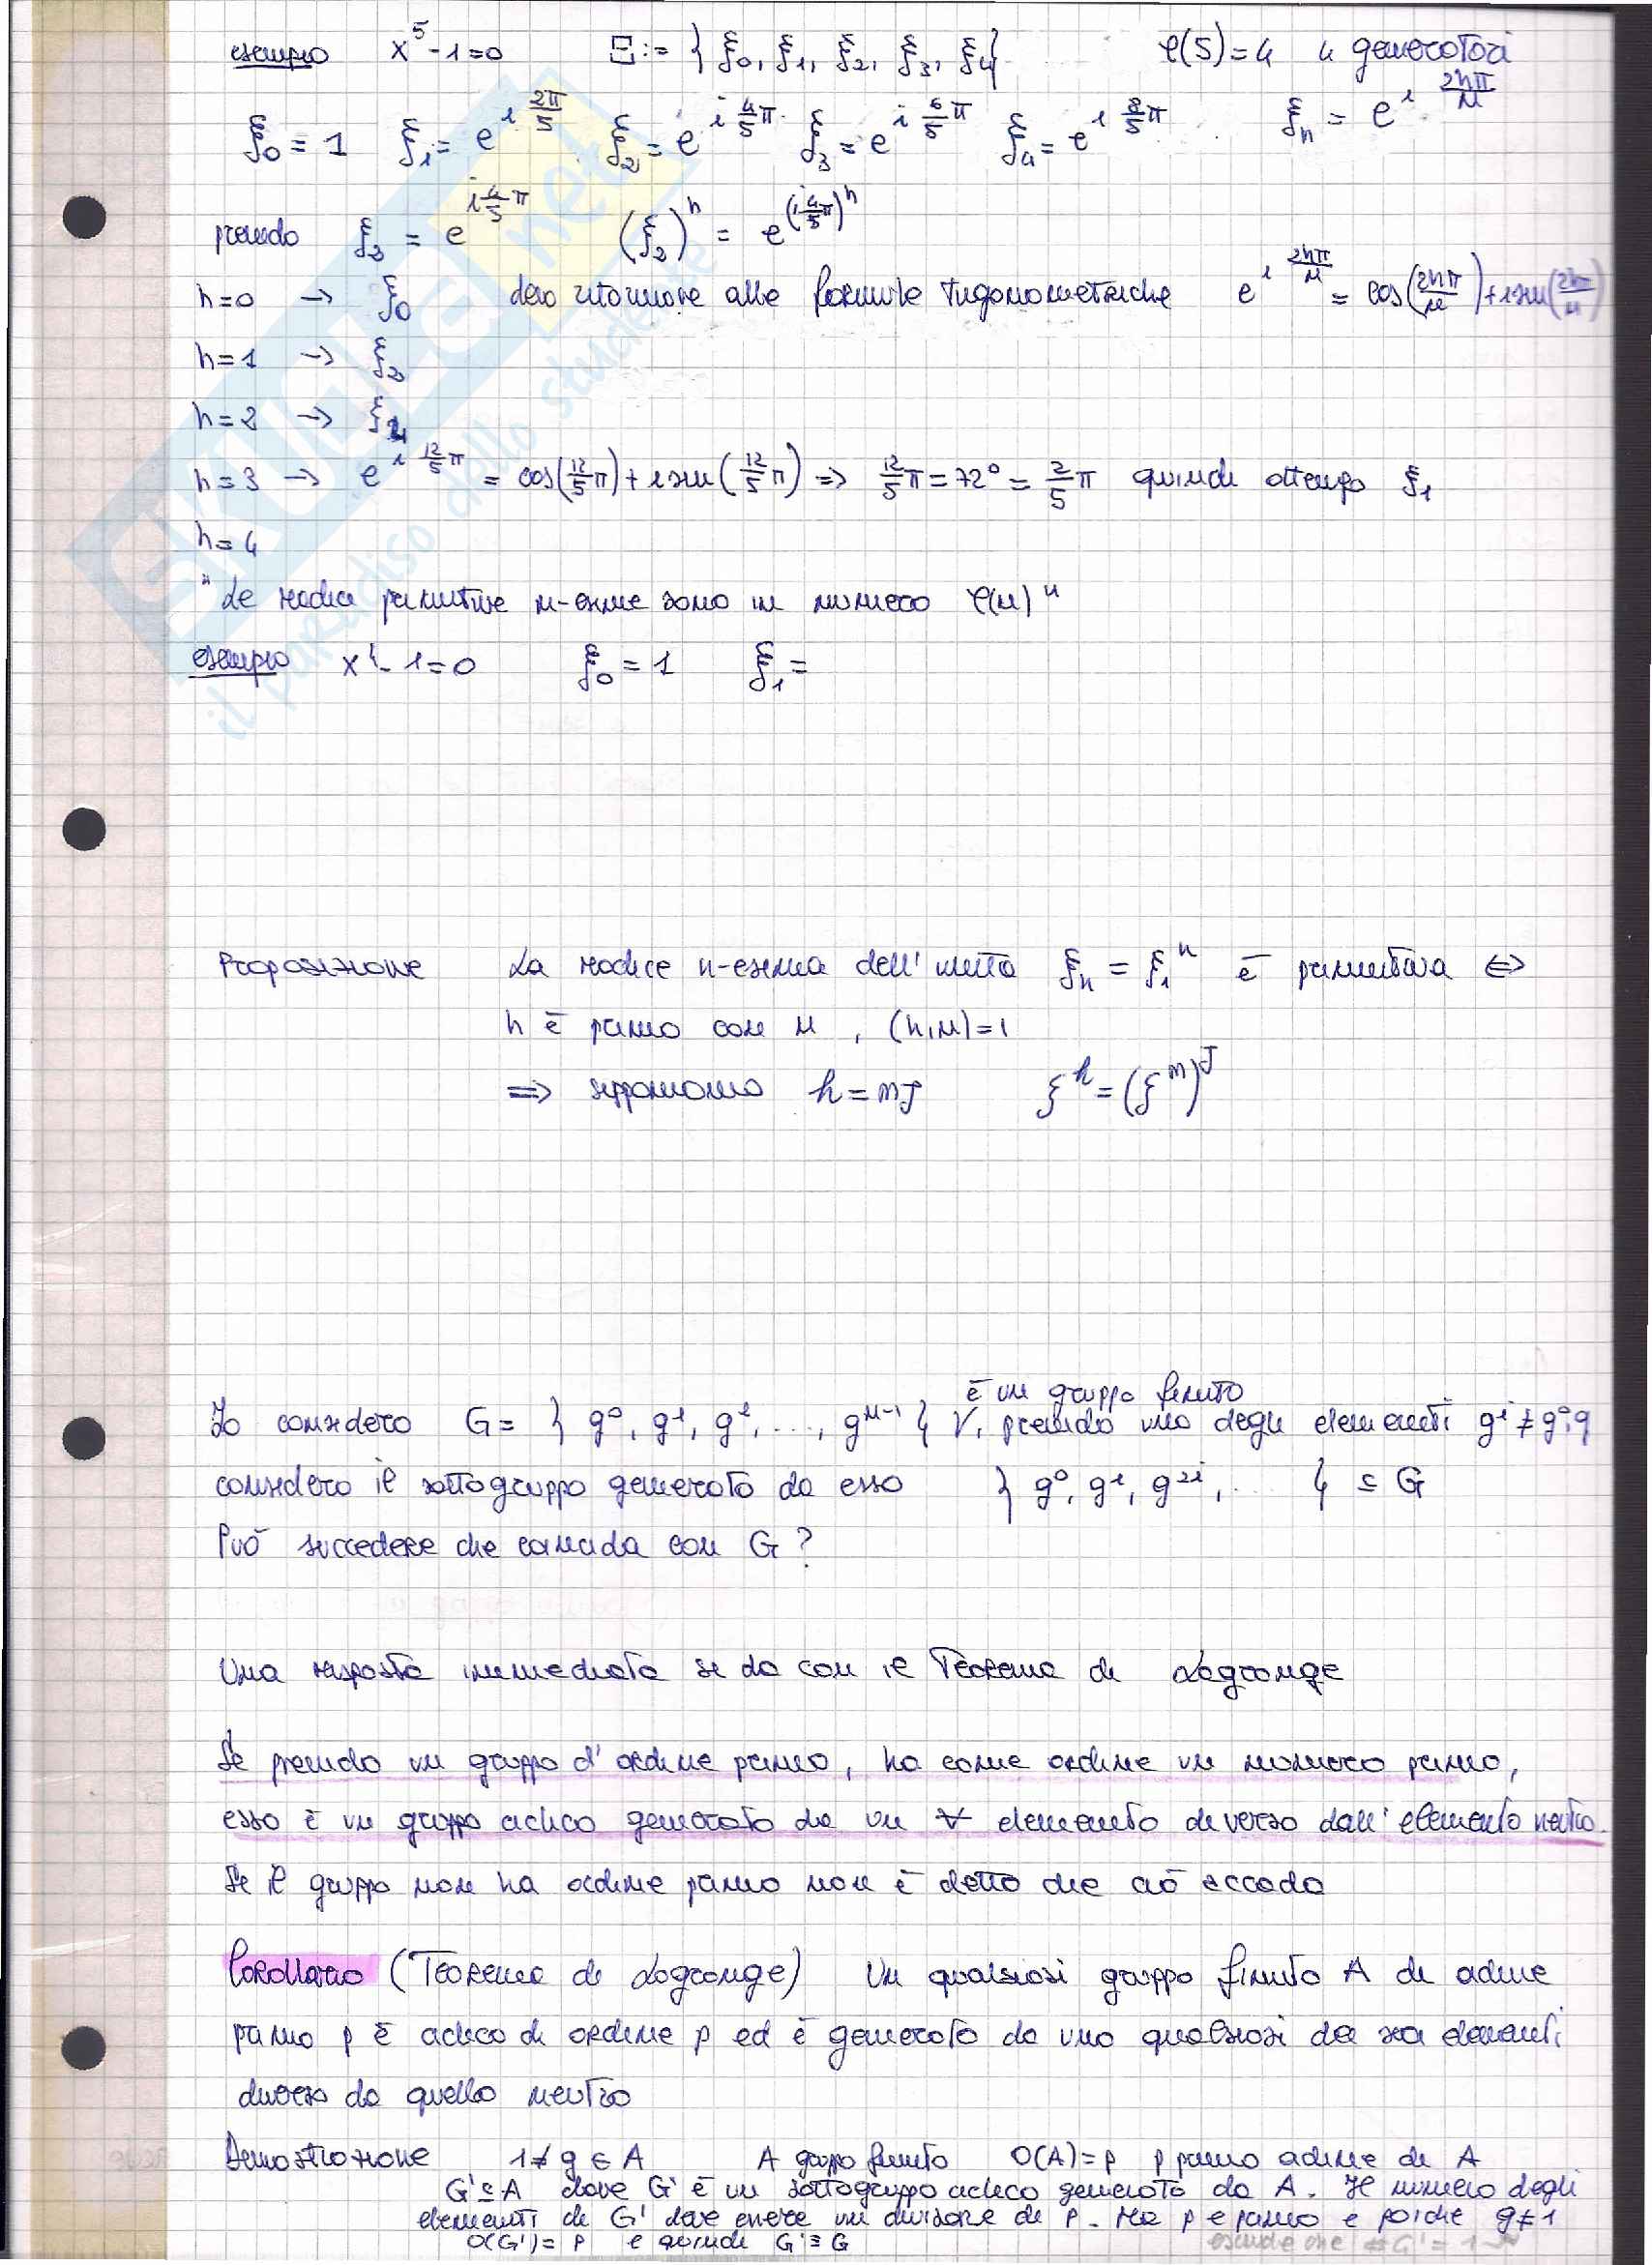 esempio x⁵-1=0 Ξ:= {ξ₀, ξ₁, ξ₂, ξ₃, ξ₄} φ(5)=4 4 generatori
ξ₀=1 ξ₁=e^{i 2π/5} ξ₂=e^{i 4/5 π} ξ₃=e^{i 6/5 π} ξ₄=e^{i 8/5 π} ξₕ=e^{i 2hπ/n}
prendo ξ₂=e^{i 4/5 π} (ξ₂)^h = e^{(i 4/5 π)^h}
h=0 → ξ₀ devo ritornare alle formule trigonometriche e^{i 2hπ/n} = cos(2hπ/n)+i sen(2hπ/n)
h=1 → ξ₂
h=2 → ξ₄
h=3 → e^{i 12/5 π} = cos(12/5 π)+i sen(12/5 π) ⇒ 12/5 π=72°=2/5 π quindi ottengo ξ₁
h=4
"Le radici primitive n-esime sono in numero φ(n)"
esempio -1=0 ξ₀=1 ξ₁=
Proposizione La radice n-esima dell'unità ξₕ=ξ₁^h è primitiva ⇔
h è primo con n, (h,n)=1
⇒ supponiamo h=mJ ξ^h=(ξ^m)^J
è un gruppo finito
Io considero G= {g⁰, g¹, g², ..., g^{n-1}}, prendo uno degli elementi g^i ≠ g⁰,g
considero il sottogruppo generato da esso {g⁰, g^i, g^{2i}, ... } ⊆ G
Può succedere che coincida con G?
Una risposta immediata si dà con il Teorema di Lagrange
Se prendo un gruppo d'ordine primo, ha come ordine un numero primo,
esso è un gruppo ciclico generato da un ∀ elemento diverso dall'elemento neutro.
Se il gruppo non ha ordine primo non è detto che ciò accada
Corollario (Teorema di Lagrange) Un qualsiasi gruppo finito A di ordine
primo p è ciclico di ordine p ed è generato da uno qualsiasi dei suoi elementi
diverso da quello neutro
Dimostrazione 1≠g∈A A gruppo finito O(A)=p p primo ordine di A
G'⊆A dove G' è un sottogruppo ciclico generato da A. Il numero degli
elementi di G' deve essere un divisore di p. Ma p è primo e poiché g≠1
O(G')=p e quindi G'≡G esclude che #G'=1
SKUOLA.net
il paradiso dello studente